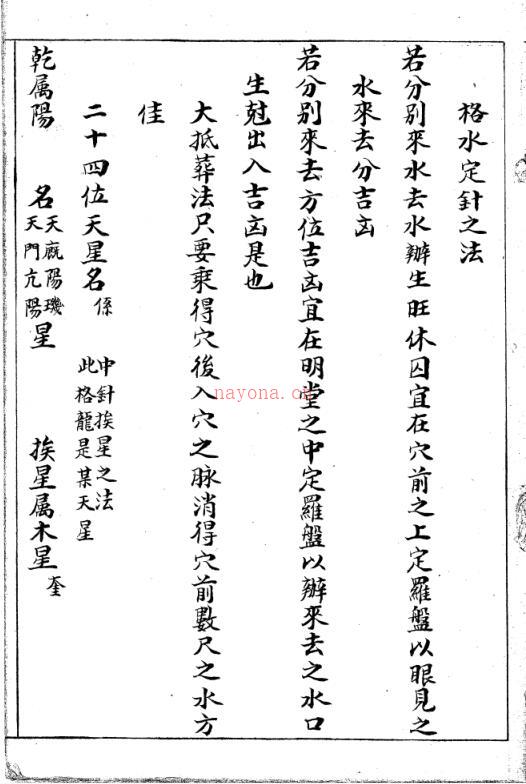 格水定針之法
若分別來水去水辦生旺休囚宜在穴前之上定羅盤以眼見之
水來去分吉凶
若分別來去方位吉凶宜在明堂之中定羅盤以辦來去之水口
生尅出入吉凶是也
大抵葬法只要乘得穴後入穴之脉消得穴前數尺之水方
佳
二十四位天星名係 中針挨星之法 此格龍是某天星
乾属陽 名 天廐陽璣 天門亢陽 星 挨星属木星奎
nayona.cn